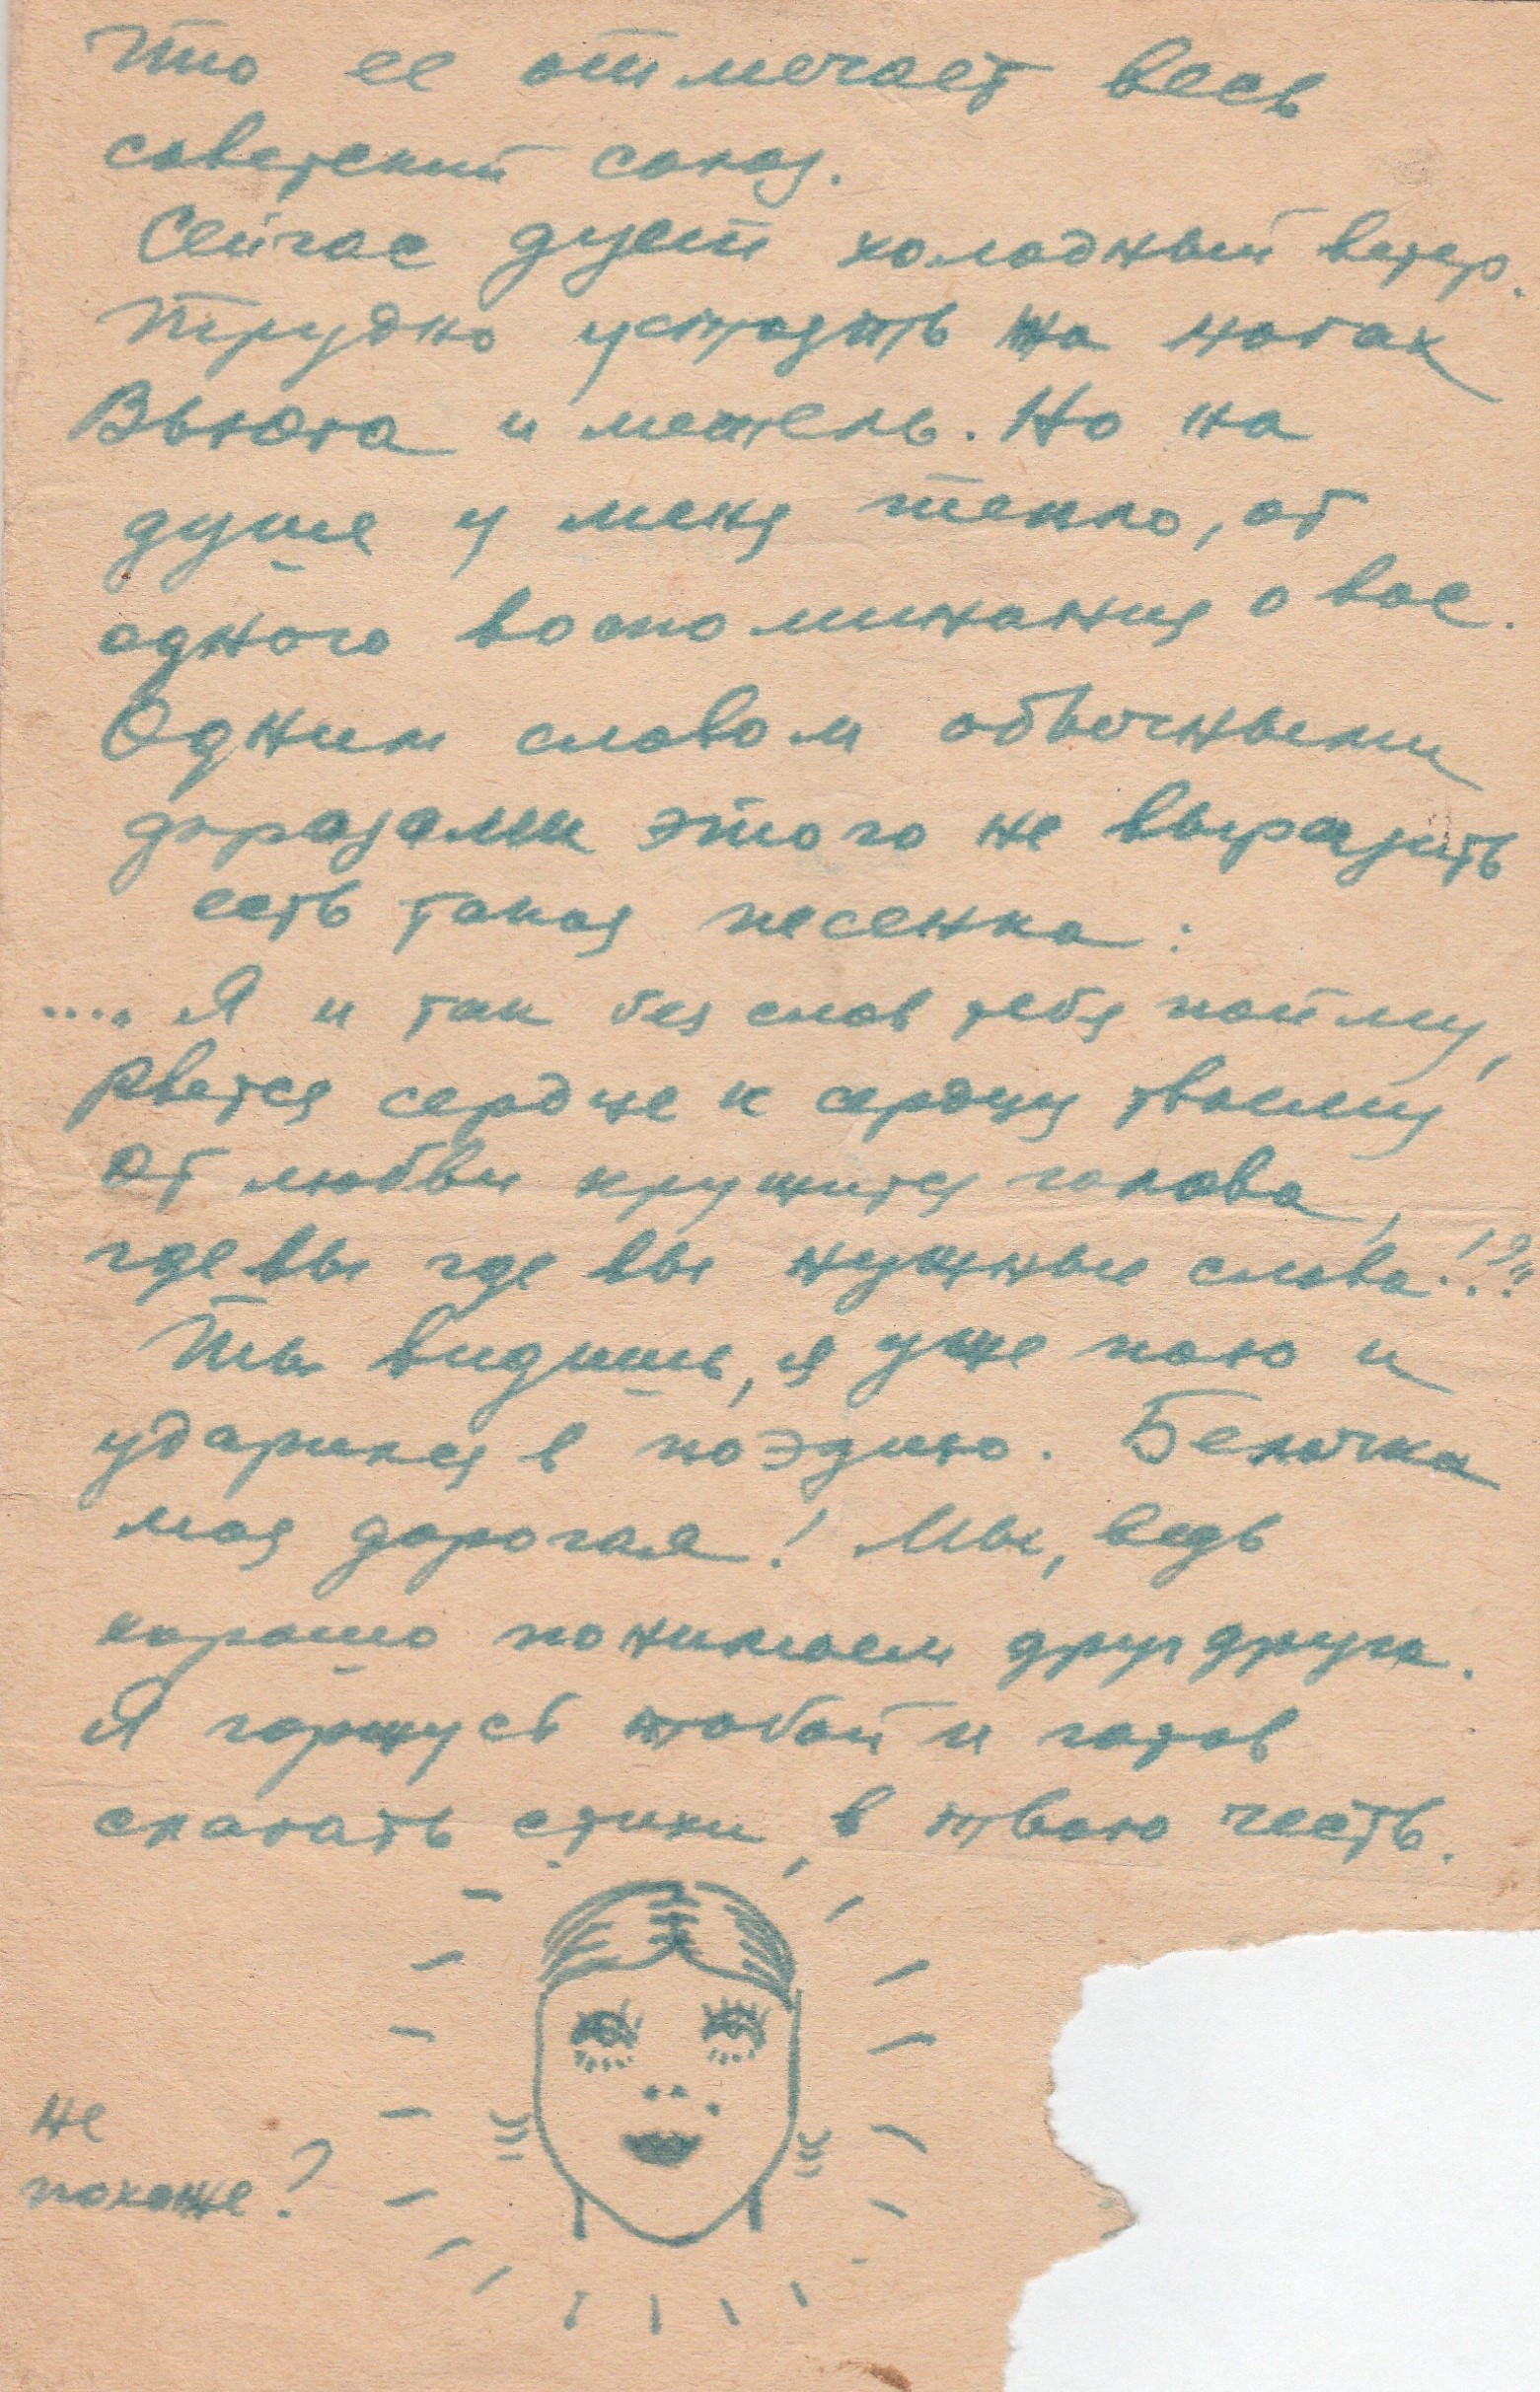 Что ее отмечает весь
советский союз.
Сейчас дует холодный ветер.
Трудно устоять на ногах
Вьюга и метель. Но на
душе у меня тепло, от
одного воспоминания о вас.
Одним словом обычными
фразами этого не выразить
есть такая песенка:
.... Я и так без слов тебя пойму,
Рвется сердце к сердцу твоему
От любви кружится голова,
где вы где вы нужные слова!?"
Ты видишь, я уже пою и
ударился в поэзию. Белочка
моя дорогая! Мы, ведь
хорошо понимаем друг друга.
Я горжусь тобой и готов
слагать стихи, в твою честь.
Не
похоже?